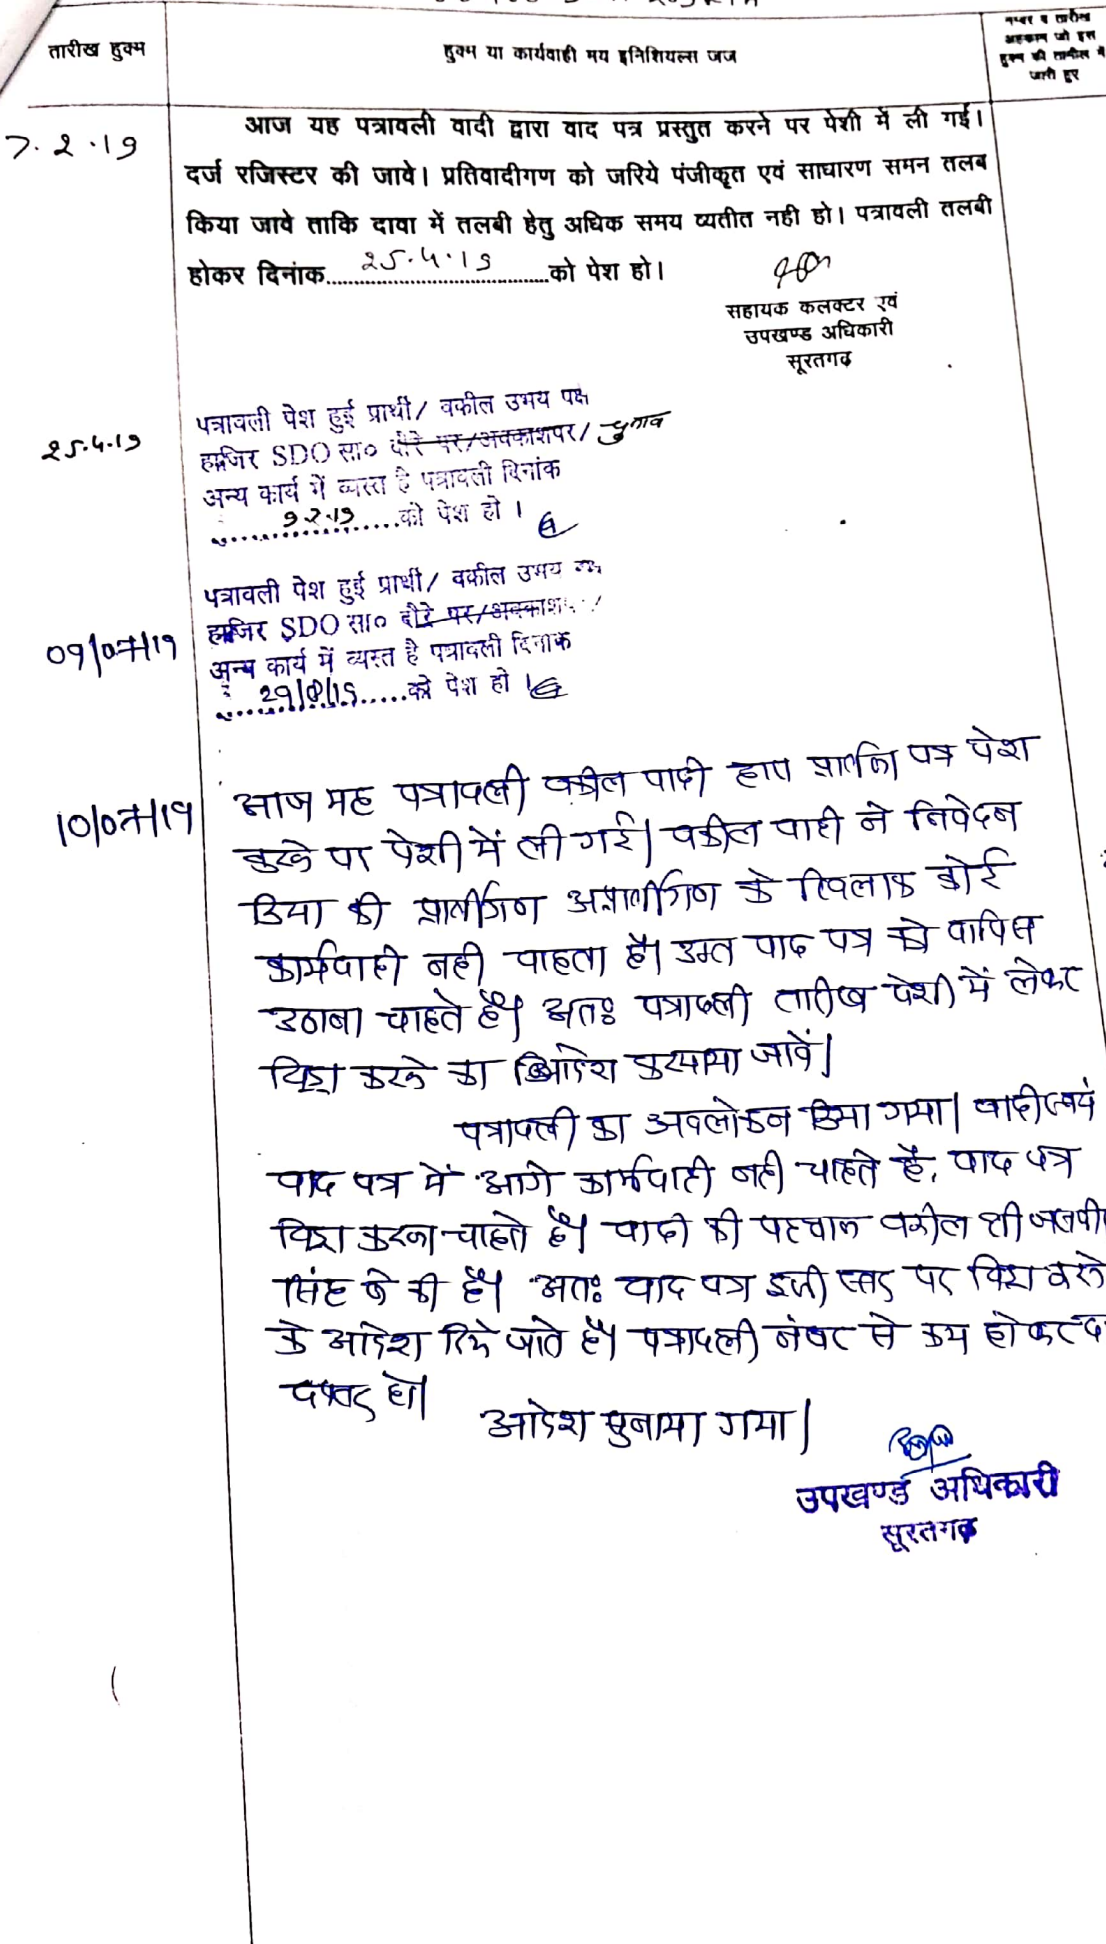 तारीख हुक्म
हुक्म या कार्यवाही मय इनिशियल्स जज
नम्बर व तारीख
अहकाम जो इस
हुक्म की तामील में
जारी हुए
7.2.19
आज यह पत्रावली वादी द्वारा वाद पत्र प्रस्तुत करने पर पेशी में ली गई।
दर्ज रजिस्टर की जावे। प्रतिवादीगण को जरिये पंजीकृत एवं साधारण समन तलब
किया जावे ताकि दावा में तलबी हेतु अधिक समय व्यतीत नही हो। पत्रावली तलबी
होकर दिनांक....25.4.19....को पेश हो।
सहायक कलक्टर एवं
उपखण्ड अधिकारी
सूरतगढ
25.4.19
पत्रावली पेश हुई प्रार्थी/ वकील उभय पक्ष
हाजिर SDO सा० दौरे पर/अवकाशपर/ चुनाव
अन्य कार्य में व्यस्त है पत्रावली दिनांक
....9.7.19....को पेश हो ।
09/07/19
पत्रावली पेश हुई प्रार्थी/ वकील उभय
हाजिर SDO सा० दौरे पर/अवकाश
अन्य कार्य में व्यस्त है पत्रावली दिनांक
....29/8/19....को पेश हो ।
10/07/19
आज यह पत्रावली वकील वादी द्वारा प्रार्थना पत्र पेश
करने पर पेशी में ली गई। वकील वादी ने निवेदन
किया की प्रार्थीगण अप्रार्थीगण के खिलाफ कोई
कार्यवाही नही चाहता है। उक्त वाद पत्र को वापिस
उठाना चाहते है। अतः पत्रावली तारीख पेशी में लेकर
विड्रा करने का आदेश फरमाया जावें।
पत्रावली का अवलोकन किया गया। वादी स्वयं
वाद पत्र में आगे कार्यवाही नही चाहते है, वाद पत्र
विड्रा करना चाहते है। वादी की पहचान वकील श्री
सिंह ने की है। अतः वाद पत्र इसी स्तर पर विड्रा करने
के आदेश दिये जाते है। पत्रावली नंबर से कम होकर
दफ्तर हो।
आदेश सुनाया गया।
उपखण्ड अधिकारी
सूरतगढ